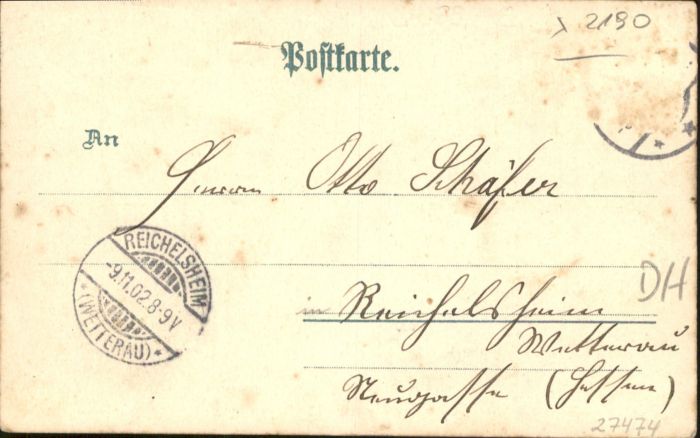 2190
Postkarte.
An
Herrn Otto Schäfer
REICHELSHEIM
-9.11.02.8-9V
*(WETTERAU)*
in Reichelsheim
DH
Wetterau
Neugasse (Hessen)
27474